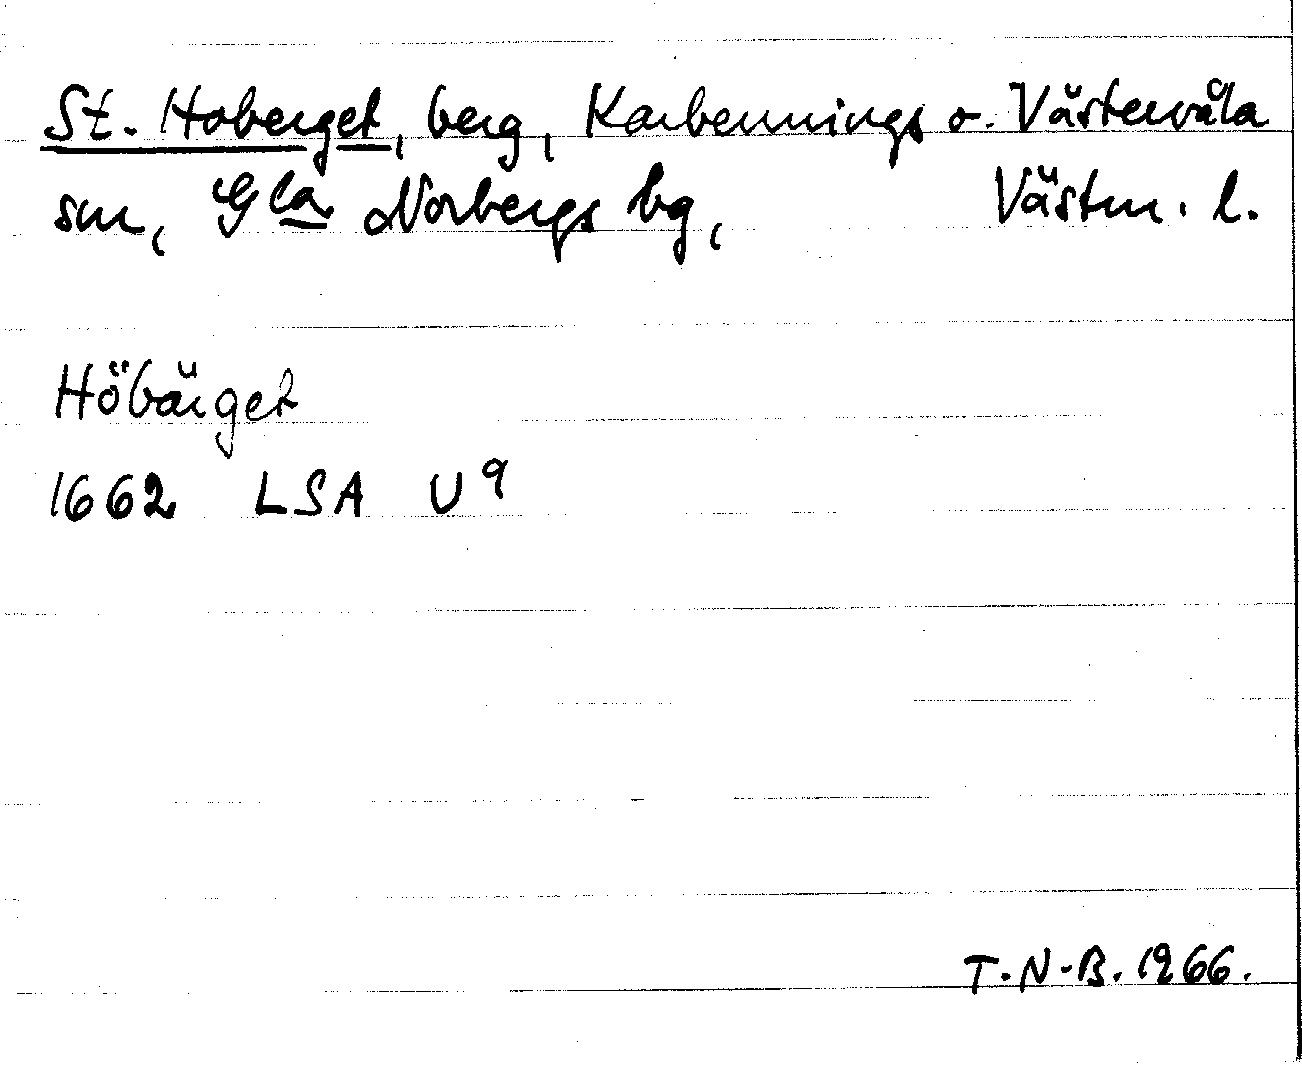 St. Hoberget, berg, Karbennings o. Västervåla
sm, Gla Norbergs bg, Västm. l.
Höbärget
1662 LSA U 9
T.N.B. 1966.